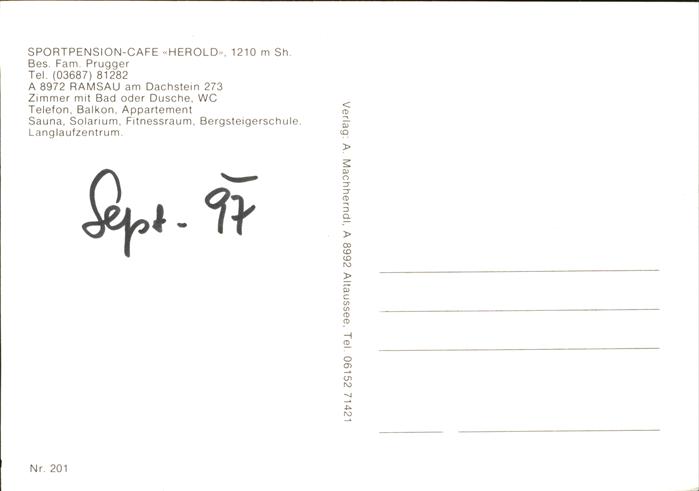 SPORTPENSION-CAFE «HEROLD», 1210 m Sh.
Bes. Fam. Prugger
Tel. (03687) 81282
A 8972 RAMSAU am Dachstein 273
Zimmer mit Bad oder Dusche, WC
Telefon, Balkon, Appartement
Sauna, Solarium, Fitnessraum, Bergsteigerschule.
Langlaufzentrum.
Sept. 97
Nr. 201
Verlag: A. Machherndl, A 8992 Altaussee, Tel. 06152 71421